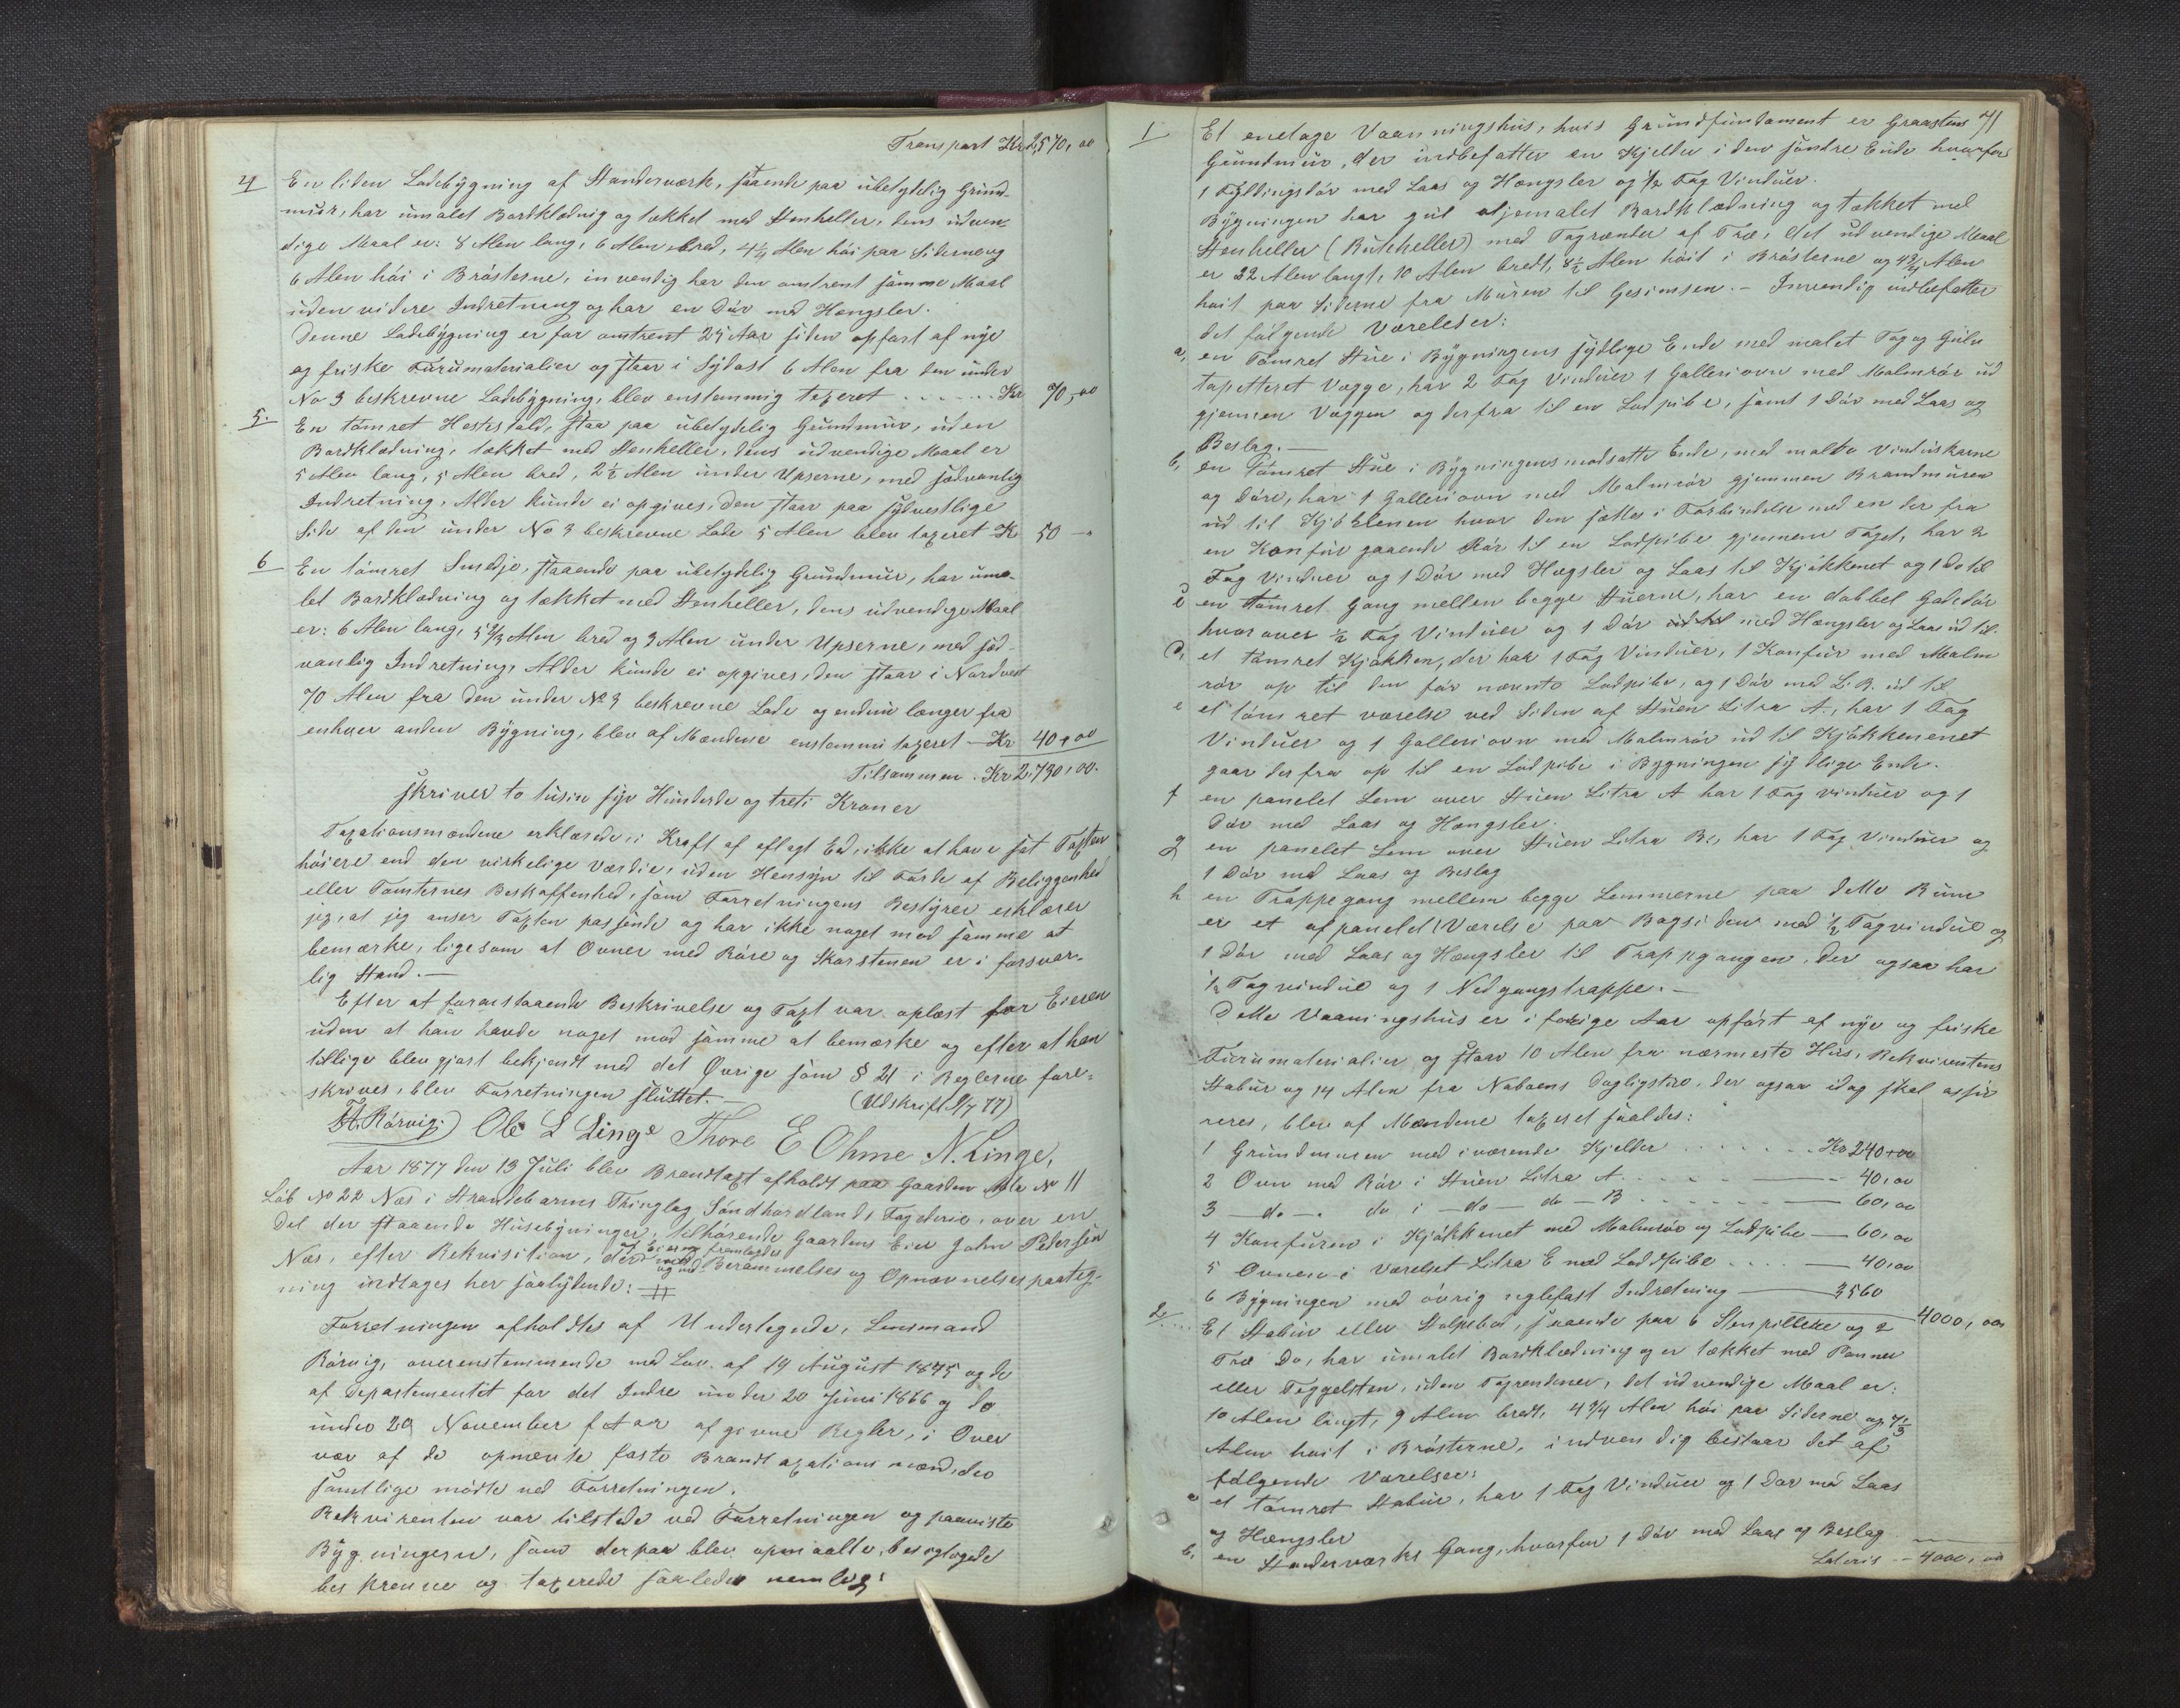 Transport Kr 2,570,00
4 En liden Ladebygning af Standerværk, staaende paa ubetydelig Grund-
muur, har umalet Bordklædnig og tækket med Stenheller, dens udven-
dige Maal er: 8 Alen lang, 6 Alen bred, 4 1/4 Alen høi paa Siderne og
6 Alen høi i Brøsterne, invendig har den omtrent samme Maal
uden videre Indretning og har en Dør med Hængsler.
Denne Ladebygning er for omtrent 25 Aar siden opført af nye
og friske Furumaterialier og staar i Sydost 6 Alen fra den under
No 3 beskrevne Ladebygning, blev enstemmig taxeret ...... Kr 70,00
5. En tømret Hestestald, staa paa ubetydelig Grundmuur, uden
Bordklædning, tækket med Stenheller, dens udvendige Maal er
5 Alen lang, 5 Alen bred, 2 1/2 Alen under Upserne, med sædvanlig
Indretning, Alder kunde ei opgives, den staar paa sydvestlige
Side af den under No 3 beskrevne Lade 5 Alen blev taxeret Kr 50 –
6 En tømret Smedje, staaende paa ubetydelig Grundmuur, har uma-
let Bordklædning og tækket med Stenheller, dens udvendige Maal
er: 6 Alen lang, 5 2/3 Alen bred og 3 Alen under Upserne, med sæd-
vanlig Indretning, Alder kunde ei opgives, den staar i Nordvest
70 Alen fra den under No 3 beskrevne Lade og endnu længer fra
enhver anden Bygning, blev af Mændene enstemmi taxeret – Kr 40,00
Tilsammen. Kr 2,730,00.
skriver to tusin syv Hunderde og treti Kroner
Taxationsmændene erklærede, i Kraft af aflagt Eed, ikke at have sat Taxten
høiere end den virkelige Værdie, uden Hensyn til Farde af Beliggenhed
eller Tomternes Beskaffenhed, som Forretningens Bestyrer erklærer
jeg, at jeg anser Taxten passende og har ikke noget mod samme at
bemærke, ligesom at Ovner med Røre og Skorstenen er i forsvar-
lig Stand. –
Efter at foranstaaende Beskrivelse og Taxt var oplæst for Eieren
uden at han havde noget mod samme at bemærke og efter at han
tillige blev gjort bekjendt med det Øvrige som § 21 i Reglerne fore-
skrives, blev Forretningen sluttet. – (Udskrift 9/7 77)
Rørvig. Ole L Linge Thore E Ohme N. Linge,
Aar 1877 den 13 Juli blev Brandtaxt afholdt paa Gaarden Mtr No 11
Løb No 22 Næs i Strandebarms Thinglag Søndhordlands Fogderie, over en
Del der staaende Husebygninger, tilhørende Gaardens Eier John Pedersen
Næs, efter Rekvisition, der af Eieren fremlagdes
og med Berammelses og Opnævnelsespaateg-
ning indtages her saalydende: –
Forretningen afholdtes af Underteguede, Lensmand
Rørvig, overenstemmende med Lov af 19 August 1845 og de
af Departementet for det Indre under 20 Juni 1866 og do
under 29 November f Aar afgivne Regler, i Over
vær af de opnævnte faste Brandtaxationsmænd, der
samtlige mødte ved Forretningen.
Rekvirenten var tilstede ved Forretningen og paaviste
Bygningerne, som derpaa blev opmaalte, besigtigede
beskrevne og taxerede saaledes nemlig:
71
1 Et enetage Vaanningshus, hvis Grundfundament er Graastens
Grundmuur, der indbefatter en Kjelder i den søndre Ende hvorfor
1 Fyldingsdør med Laas og Hængsler og 1/2 Fag Vinduer.
Bygningen har gul oljemalet Bordklædning og tækket med
Stenheller (Rudeheller) med Tagrænder af Træ, det udvendige Maal
er 22 Alen langt, 10 Alen bredt, 8 1/2 Alen høit i Brøsterne og 4 3/4 Alen
høit paa Siderne fra Muren til Gesimsen. – Invendig indbefatter
det følgende Værelser:
a, en Tømret Stue i Bygningens sydlige Ende med malet Tag og Gulv
tapetteret Vægge, har 2 Fag Vinduer 1 Galleriovn med Malmrør ud
gjennem Væggen og derfra til en Lodpibe, samt 1 Dør med Laas og
Beslag. –
b, en Tømret Stue i Bygningens modsatte Ende, med malte Vinduskarme
og Døre, har 1 Galleriovn med Malmrør gjennem Brandmuren
ud til Kjøkkenen hvor den sættes i Forbindelse med en der fra
en Konfur gaaende Rør til en Lodpibe gjennem Taget, har 2
Fag Vinduer og 1 Dør med Hægsler og Laas til Kjøkkenet og 1 Do til
c en tømret Gang mellem begge Stuerne, har en dobbel Gadedør
hvorover 1/2 Fag Vinduer og 1 Dør med Hængsler og Laas ud til
d, et tømret Kjøkken, der har 1 Fag Vinduer, 1 Konfur med Malm
rør op til den før nævnte Lodpibe, og 1 Dør med L. B. ud til
e et tømret værelse ved Siden af Stuen Litra A., har 1 Fag
Vinduer og 1 Galleriovn med Malmrør ud til Kjøkkenenet
gaar derfra op til en Lodpibe i Bygningen sydlige Ende.
f en panelet Lem over Stuen Litra A har 1 Fag vinduer og 1
Dør med Laas og Hængsler.
g en panelet Lem over Stuen Litra B, har 1 Fag Vinduer og
1 Dør med Laas og Beslag
h en Trappegang mellem begge Lemmerne paa dette Rum
er et afpanelet Værelse paa Bagsiden med 1/2 Fagvindue og
1 Dør med Laas og Hængsler til Trappgangen, der ogsaa har
1/2 Fagvindue og 1 Nedgangstrappe. –
Dette Vaaningshus er i forrige Aar opført af nye og friske
Furumaterialier og staar 10 Alen fra nærmeste Hus, Rekvirentens
Stabur og 14 Alen fra Naboens Dagligstue, der ogsaa idag skal assu
reres, blev af Mændene taxeret saaledes:
1 Grundmuren med iværende Kjelder ...... Kr 240,00
2 Ovn med Rør i Stuen Litra A .... – 40,00
3 – do – do i – do – do – B ..... – 60,00
4 Konfuren i Kjøkkenet med Malmrør og Lodpibe – 60,00
5 Ovnen i Værelset Litra E med Lodpibe .... – 40,00
6 Bygningen med øvrig naglefast Indretning – 3560
4000,00
2. Et Stabur eller Stolpebod, staaende paa 6 Stenpillere og 2
Træ Do, har umalet Bordklædning og er tækket med Panner
eller Teggelsten, uden Tagrender, det udvendige Maal er:
10 Alen langt, 9 Alen bredt, 4 3/4 Alen høi paa Siderne og 7 1/3
Alen høit i Brøsterne, indvendig bestaar det af
følgende Værelser:
a et tømret Stabur, har 1 Fag Vinduer og 1 Dør med Laas
og Hængsler
b, en Standerværks Gang, hvorfor 1 Dør med Laas og Beslag
Lateris – 4000,00